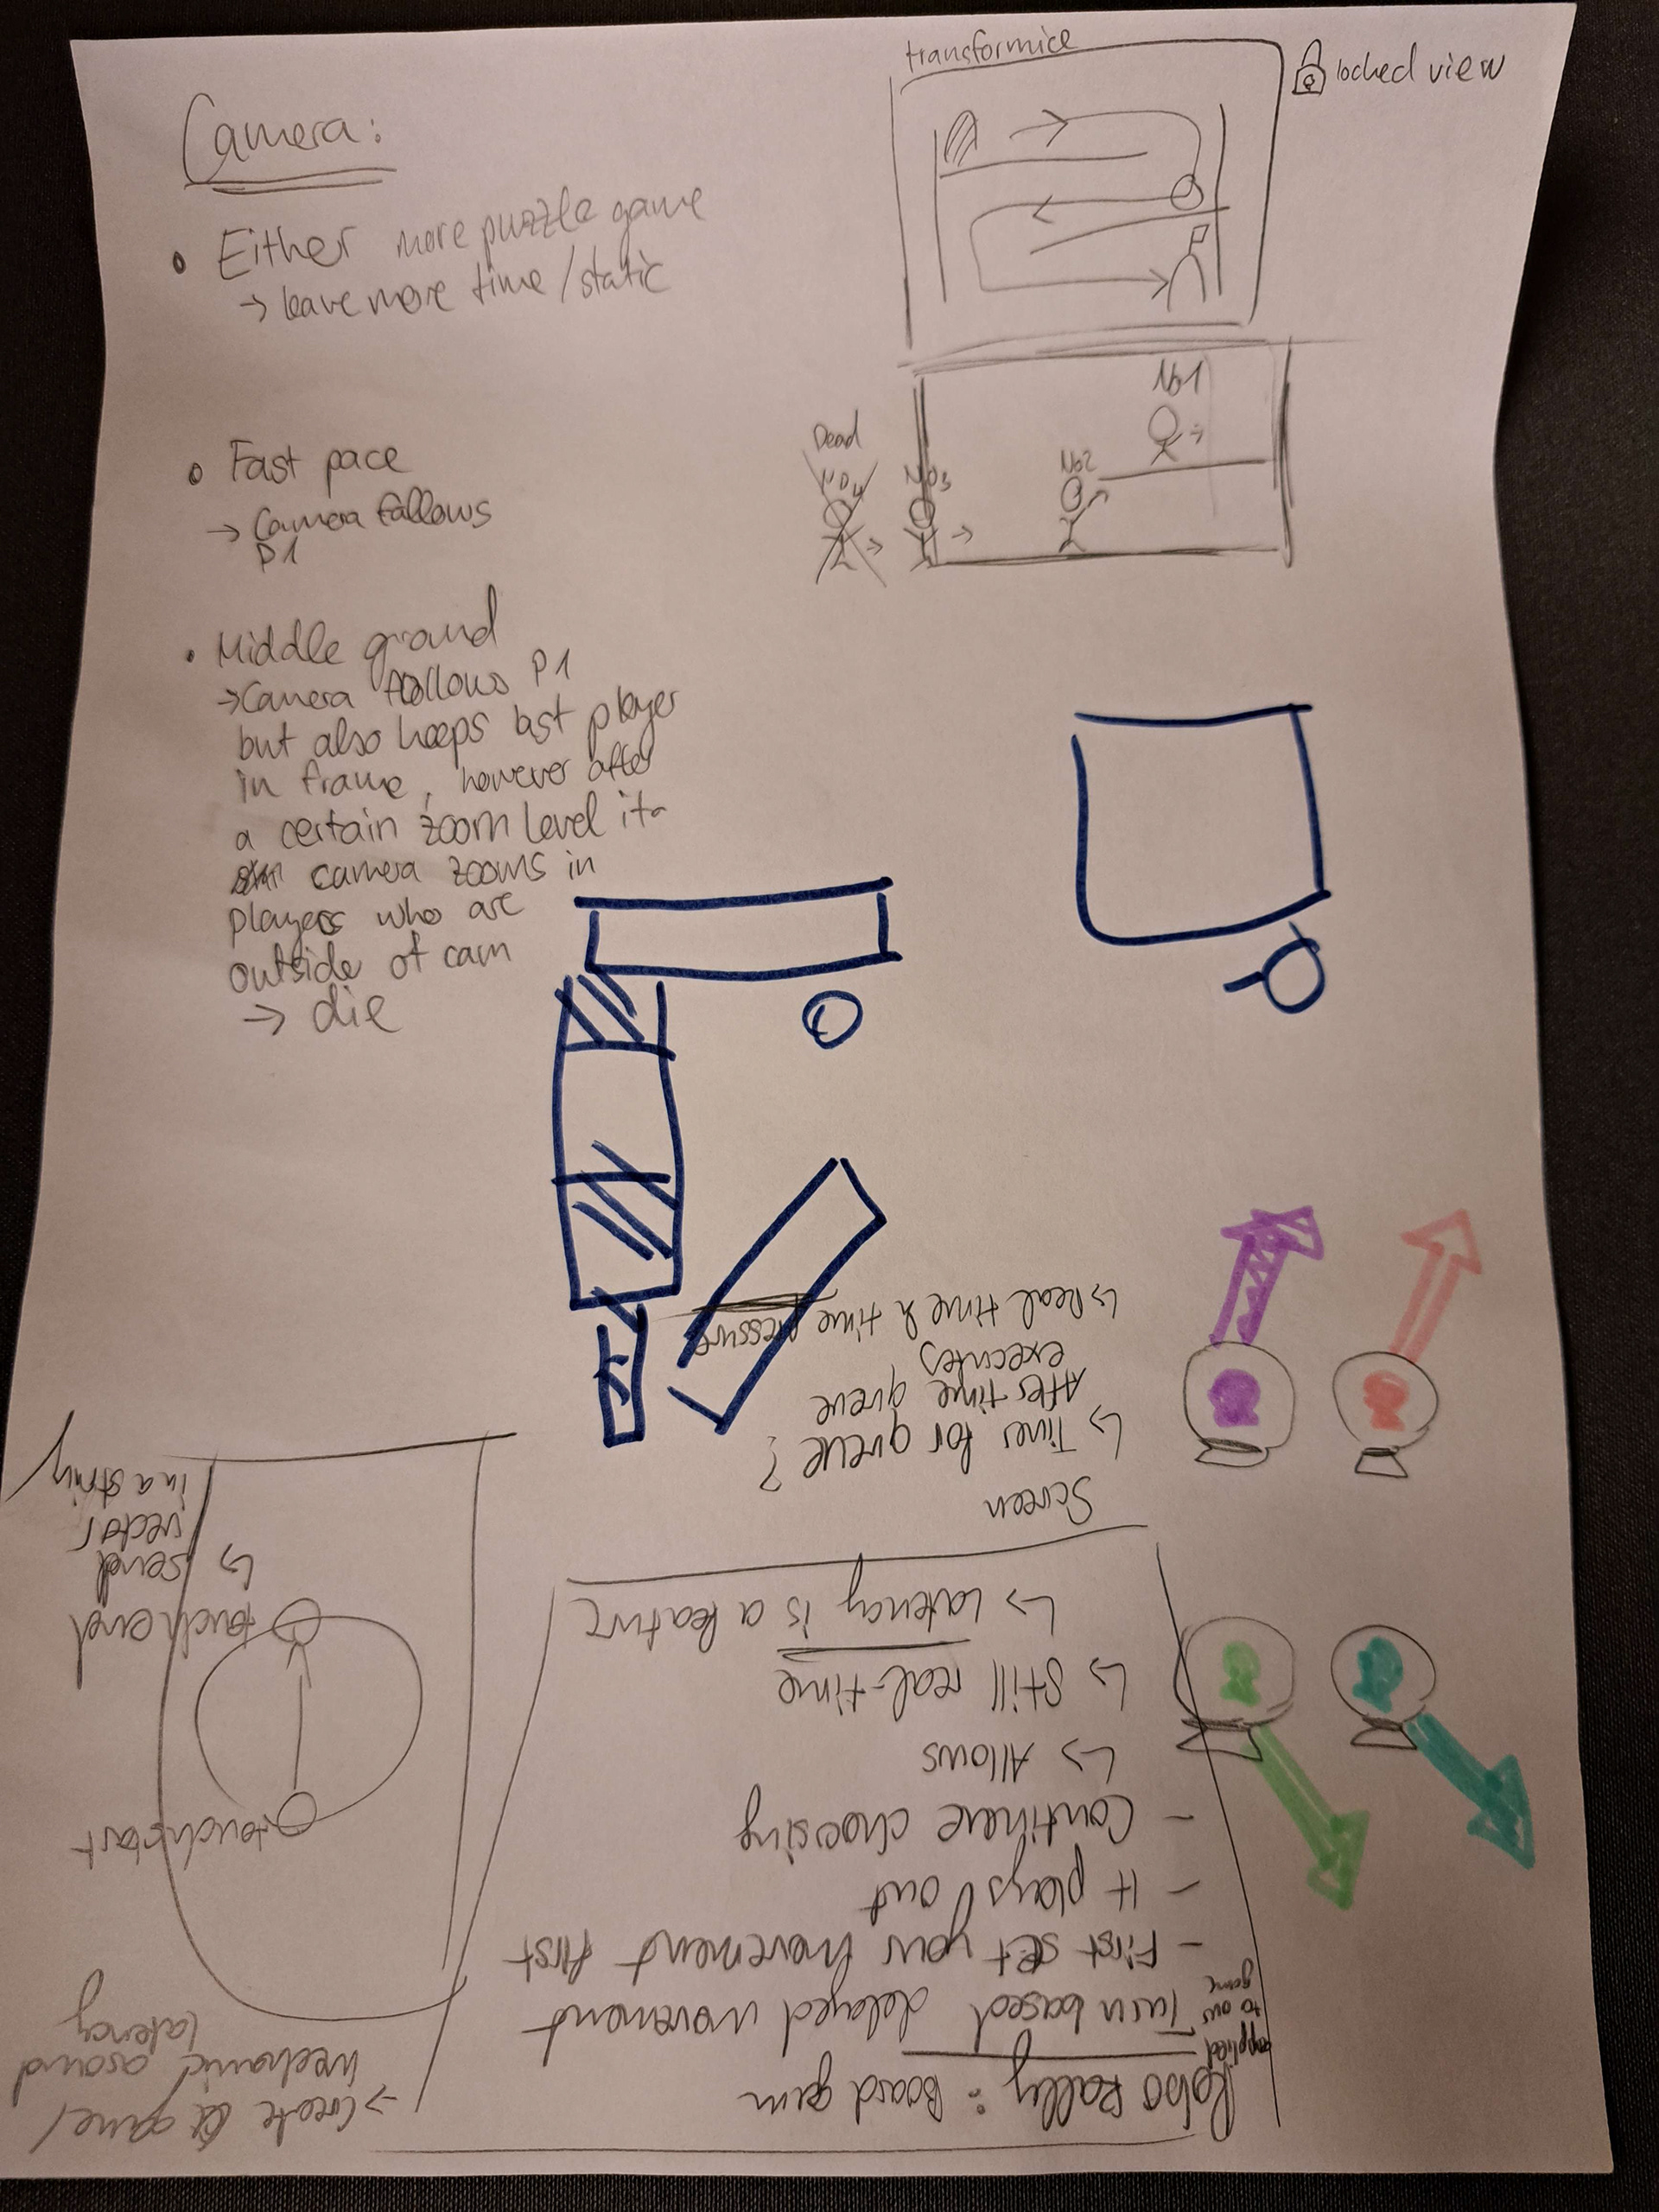 Camera:
• Either more puzzle game
→ leave more time/static
• Fast pace
→ Camera follows
P1
• Middle ground
→ Camera follows P1
but also keeps last player
in frame, however after
a certain zoom level it
camera zooms in
players who are
outside of cam
→ die
transformice
locked view
No1
No2
No3
Dead
No4
Robo Rally: Board gam
applied
to our
game
Turn based delayed movement
- First set your movement first
- It plays out
- Continue choosing
↳ Allows
↳ Still real-time
↳ Latency is a feature
Screen
↳ Timer for queue?
After time queue
executes
↳ Real time & time pressure
→ Create a game/
mechanic around
latency
touchstart
touchend
↳ send
vector
in a string